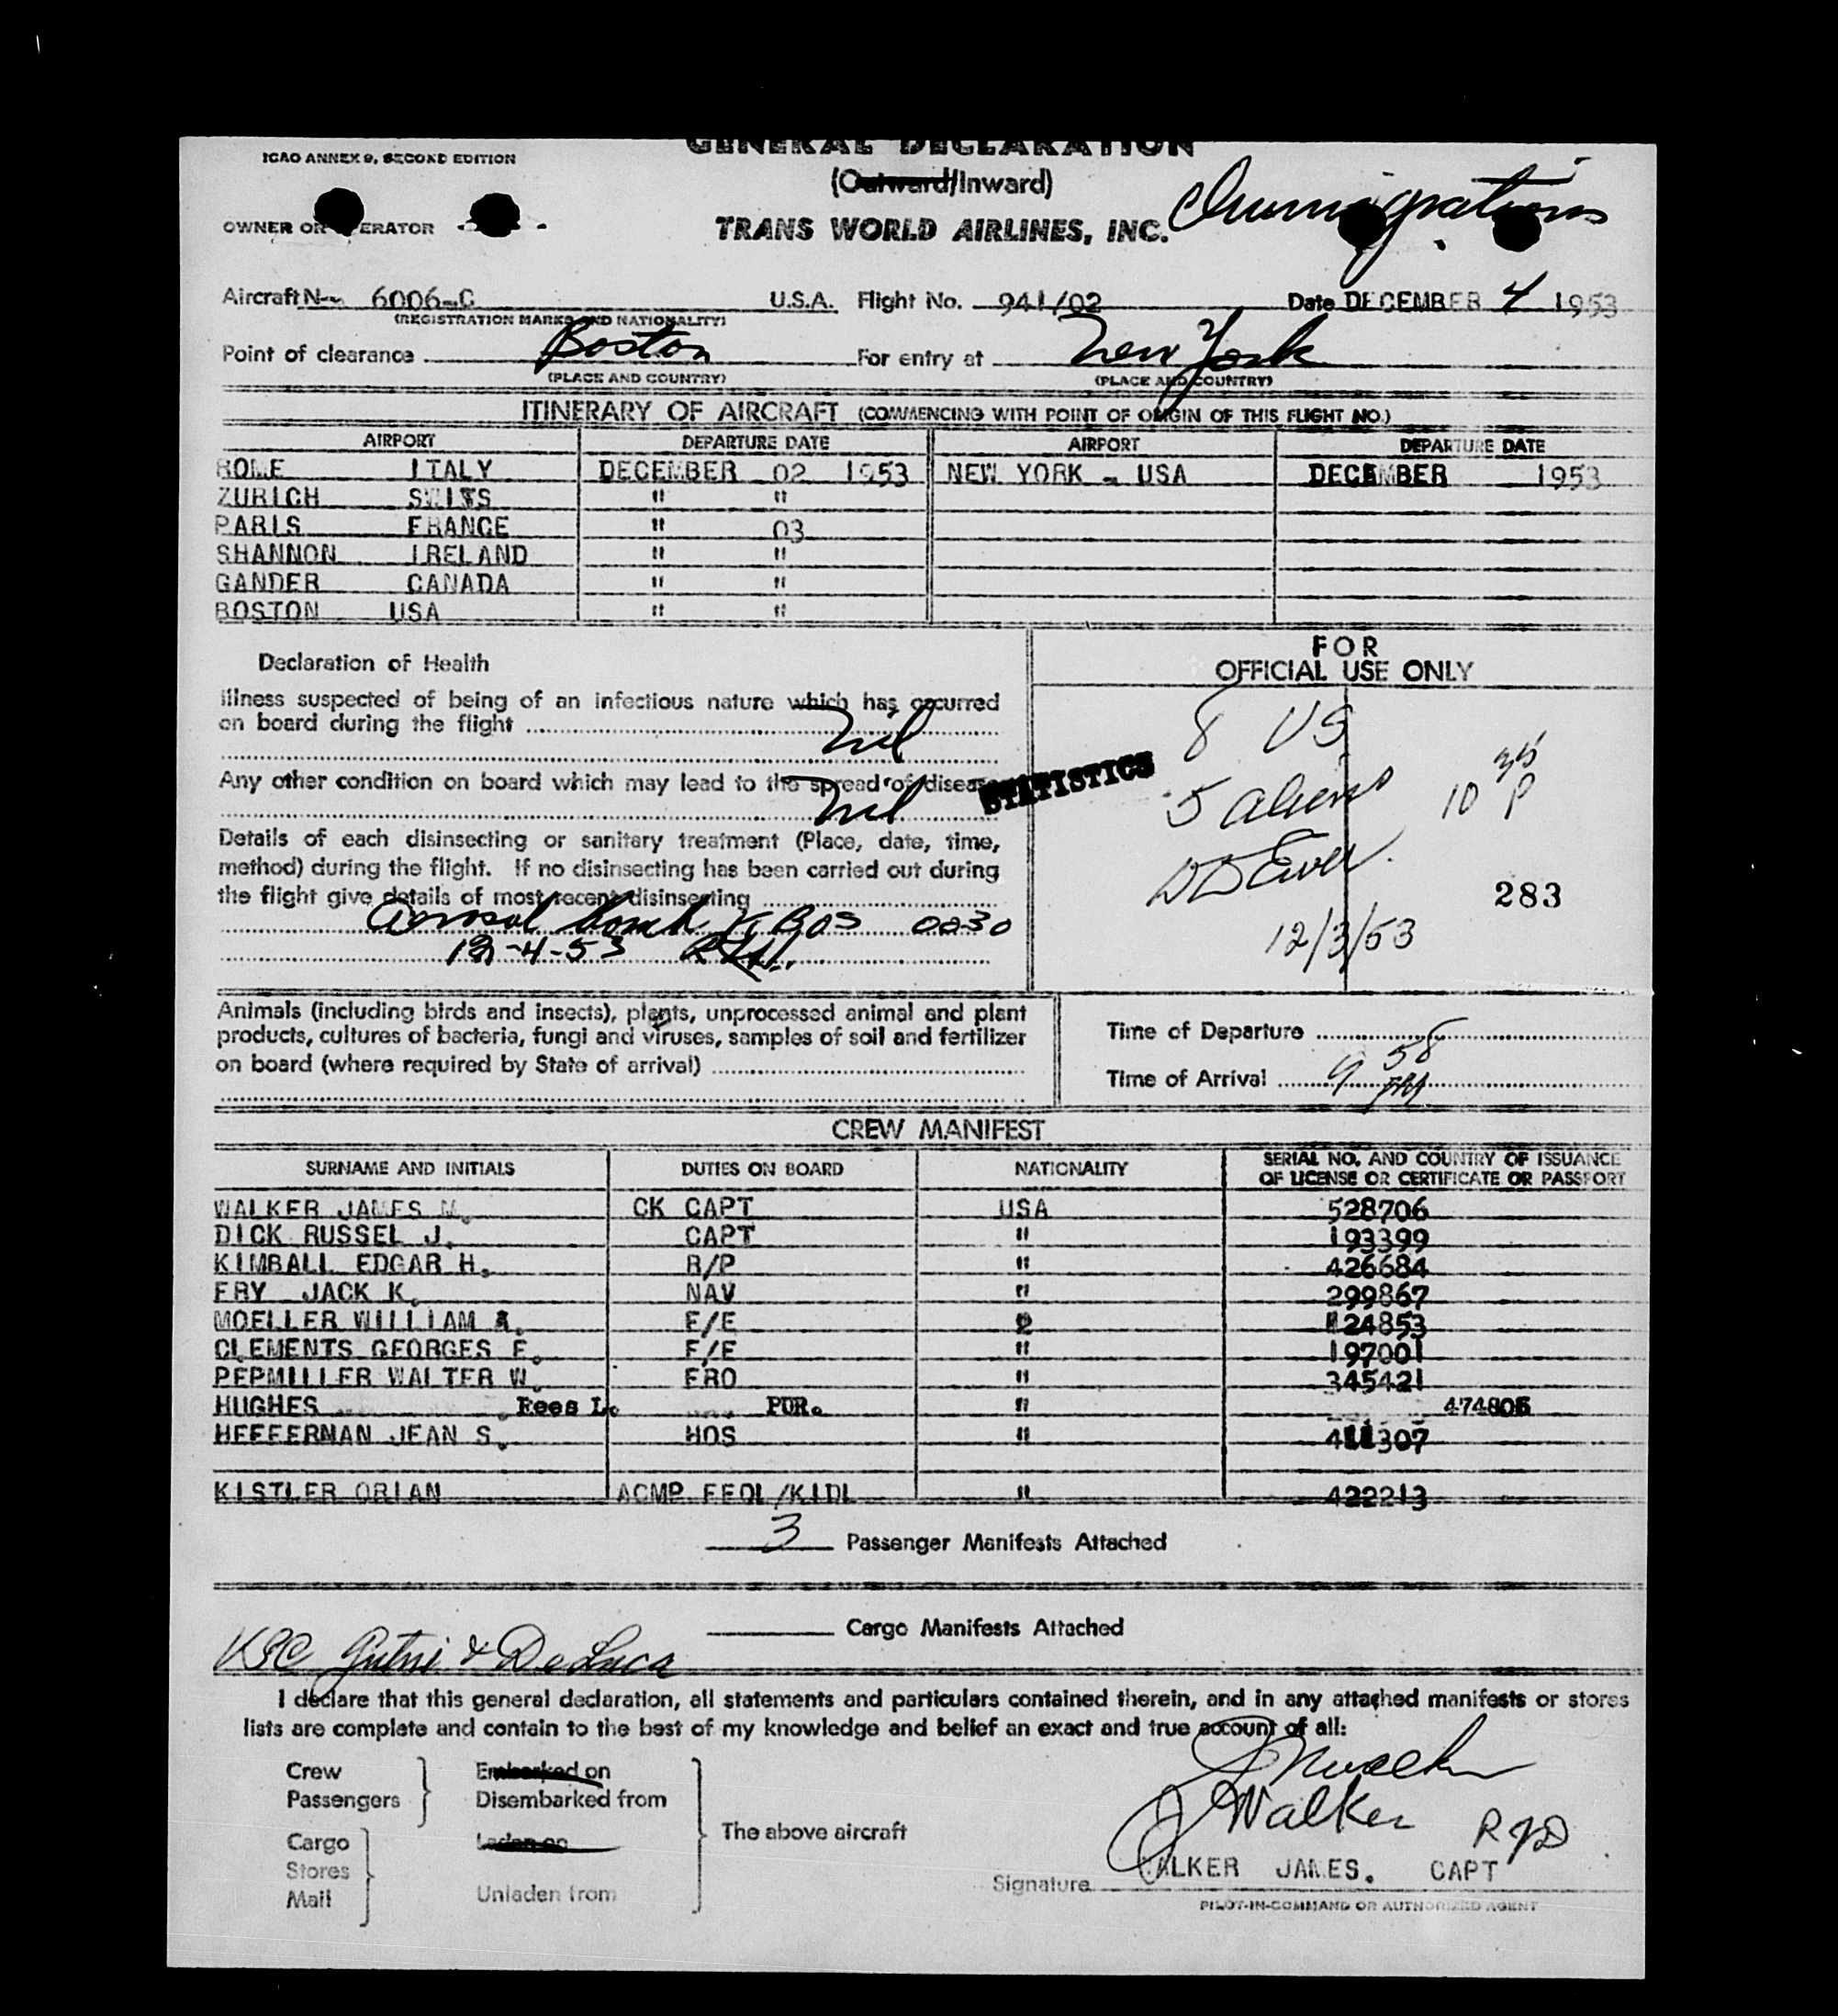 GENERAL DECLARATION
ICAO ANNEX 9, SECOND EDITION
(Outward/Inward)
OWNER OR OPERATOR
TRANS WORLD AIRLINES, INC.
Aircraft N-- 6006-C U.S.A. Flight No. 941/02 Date DECEMBER 4 1953
(REGISTRATION MARKS AND NATIONALITY)
Point of clearance Boston For entry at New York
(PLACE AND COUNTRY) (PLACE AND COUNTRY)
ITINERARY OF AIRCRAFT (COMMENCING WITH POINT OF ORIGIN OF THIS FLIGHT NO.)
AIRPORT DEPARTURE DATE AIRPORT DEPARTURE DATE
ROME ITALY DECEMBER 02 1953 NEW YORK - USA DECEMBER 1953
ZURICH SWITS " "
PARIS FRANCE " 03
SHANNON IRELAND " "
GANDER CANADA " "
BOSTON USA " "
Declaration of Health
Illness suspected of being of an infectious nature which has occurred
on board during the flight
Nil
Any other condition on board which may lead to the spread of disease
Nil
Details of each disinsecting or sanitary treatment (Place, date, time,
method) during the flight. If no disinsecting has been carried out during
the flight give details of most recent disinsecting
Aerosol bomb BOS 0030
12-4-53
STATISTICS
FOR
OFFICIAL USE ONLY
8 US
5 aliens
10 35 P
283
12/3/53
Animals (including birds and insects), plants, unprocessed animal and plant
products, cultures of bacteria, fungi and viruses, samples of soil and fertilizer
on board (where required by State of arrival)
Time of Departure
Time of Arrival 9 58 PM
CREW MANIFEST
SURNAME AND INITIALS DUTIES ON BOARD NATIONALITY SERIAL NO. AND COUNTRY OF ISSUANCE
OF LICENSE OR CERTIFICATE OR PASSPORT
WALKER JAMES M. CK CAPT USA 528706
DICK RUSSEL J. CAPT " 193399
KIMBALL EDGAR H. R/P " 426684
FRY JACK K. NAV " 299867
MOELLER WILLIAM A. F/E 24853
CLEMENTS GEORGES F. F/E " 197001
PEPMILLER WALTER W. FRO " 345421
HUGHES Rees L. PUR. " 474806
HEFFERMAN JEAN S. HOS " 411307
KISTLER ORIAN ACMP FEOL/KIDL " 422213
3 Passenger Manifests Attached
Cargo Manifests Attached
& DeLuca
I declare that this general declaration, all statements and particulars contained therein, and in any attached manifests or stores
lists are complete and contain to the best of my knowledge and belief an exact and true account of all:
Crew
Passengers
Embarked on
Disembarked from
Cargo
Stores
Mail
Laden on
Unladen from
The above aircraft
Walker
RJD
Signature WALKER JAMES. CAPT
PILOT-IN-COMMAND OR AUTHORIZED AGENT